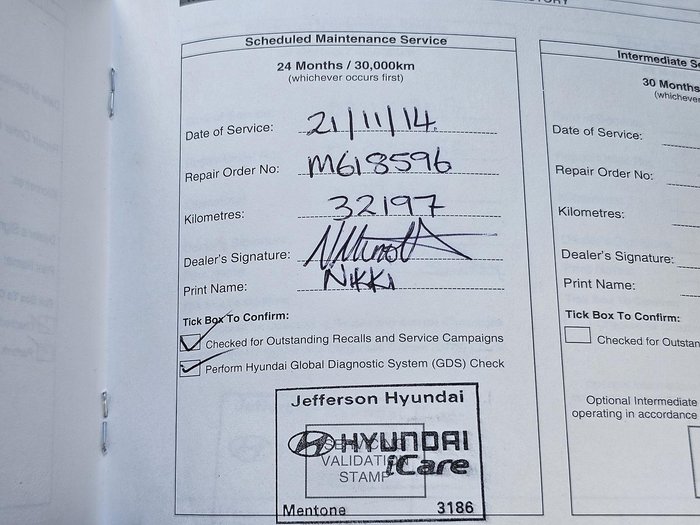 Scheduled Maintenance Service
24 Months / 30,000km
(whichever occurs first)
Date of Service: 21/11/14
Repair Order No: M618596
Kilometres: 32197
Dealer's Signature:
Print Name: NIKKI
Tick Box To Confirm:
Checked for Outstanding Recalls and Service Campaigns
Perform Hyundai Global Diagnostic System (GDS) Check
Jefferson Hyundai
HYUNDAI
iCare
VALIDATION
STAMP
Mentone 3186
Intermediate
30 Months
(whichever
Date of Service:
Repair Order No:
Kilometres:
Dealer's Signature:
Print Name:
Tick Box To Confirm:
Checked for
Optional Intermediate
operating in accordance